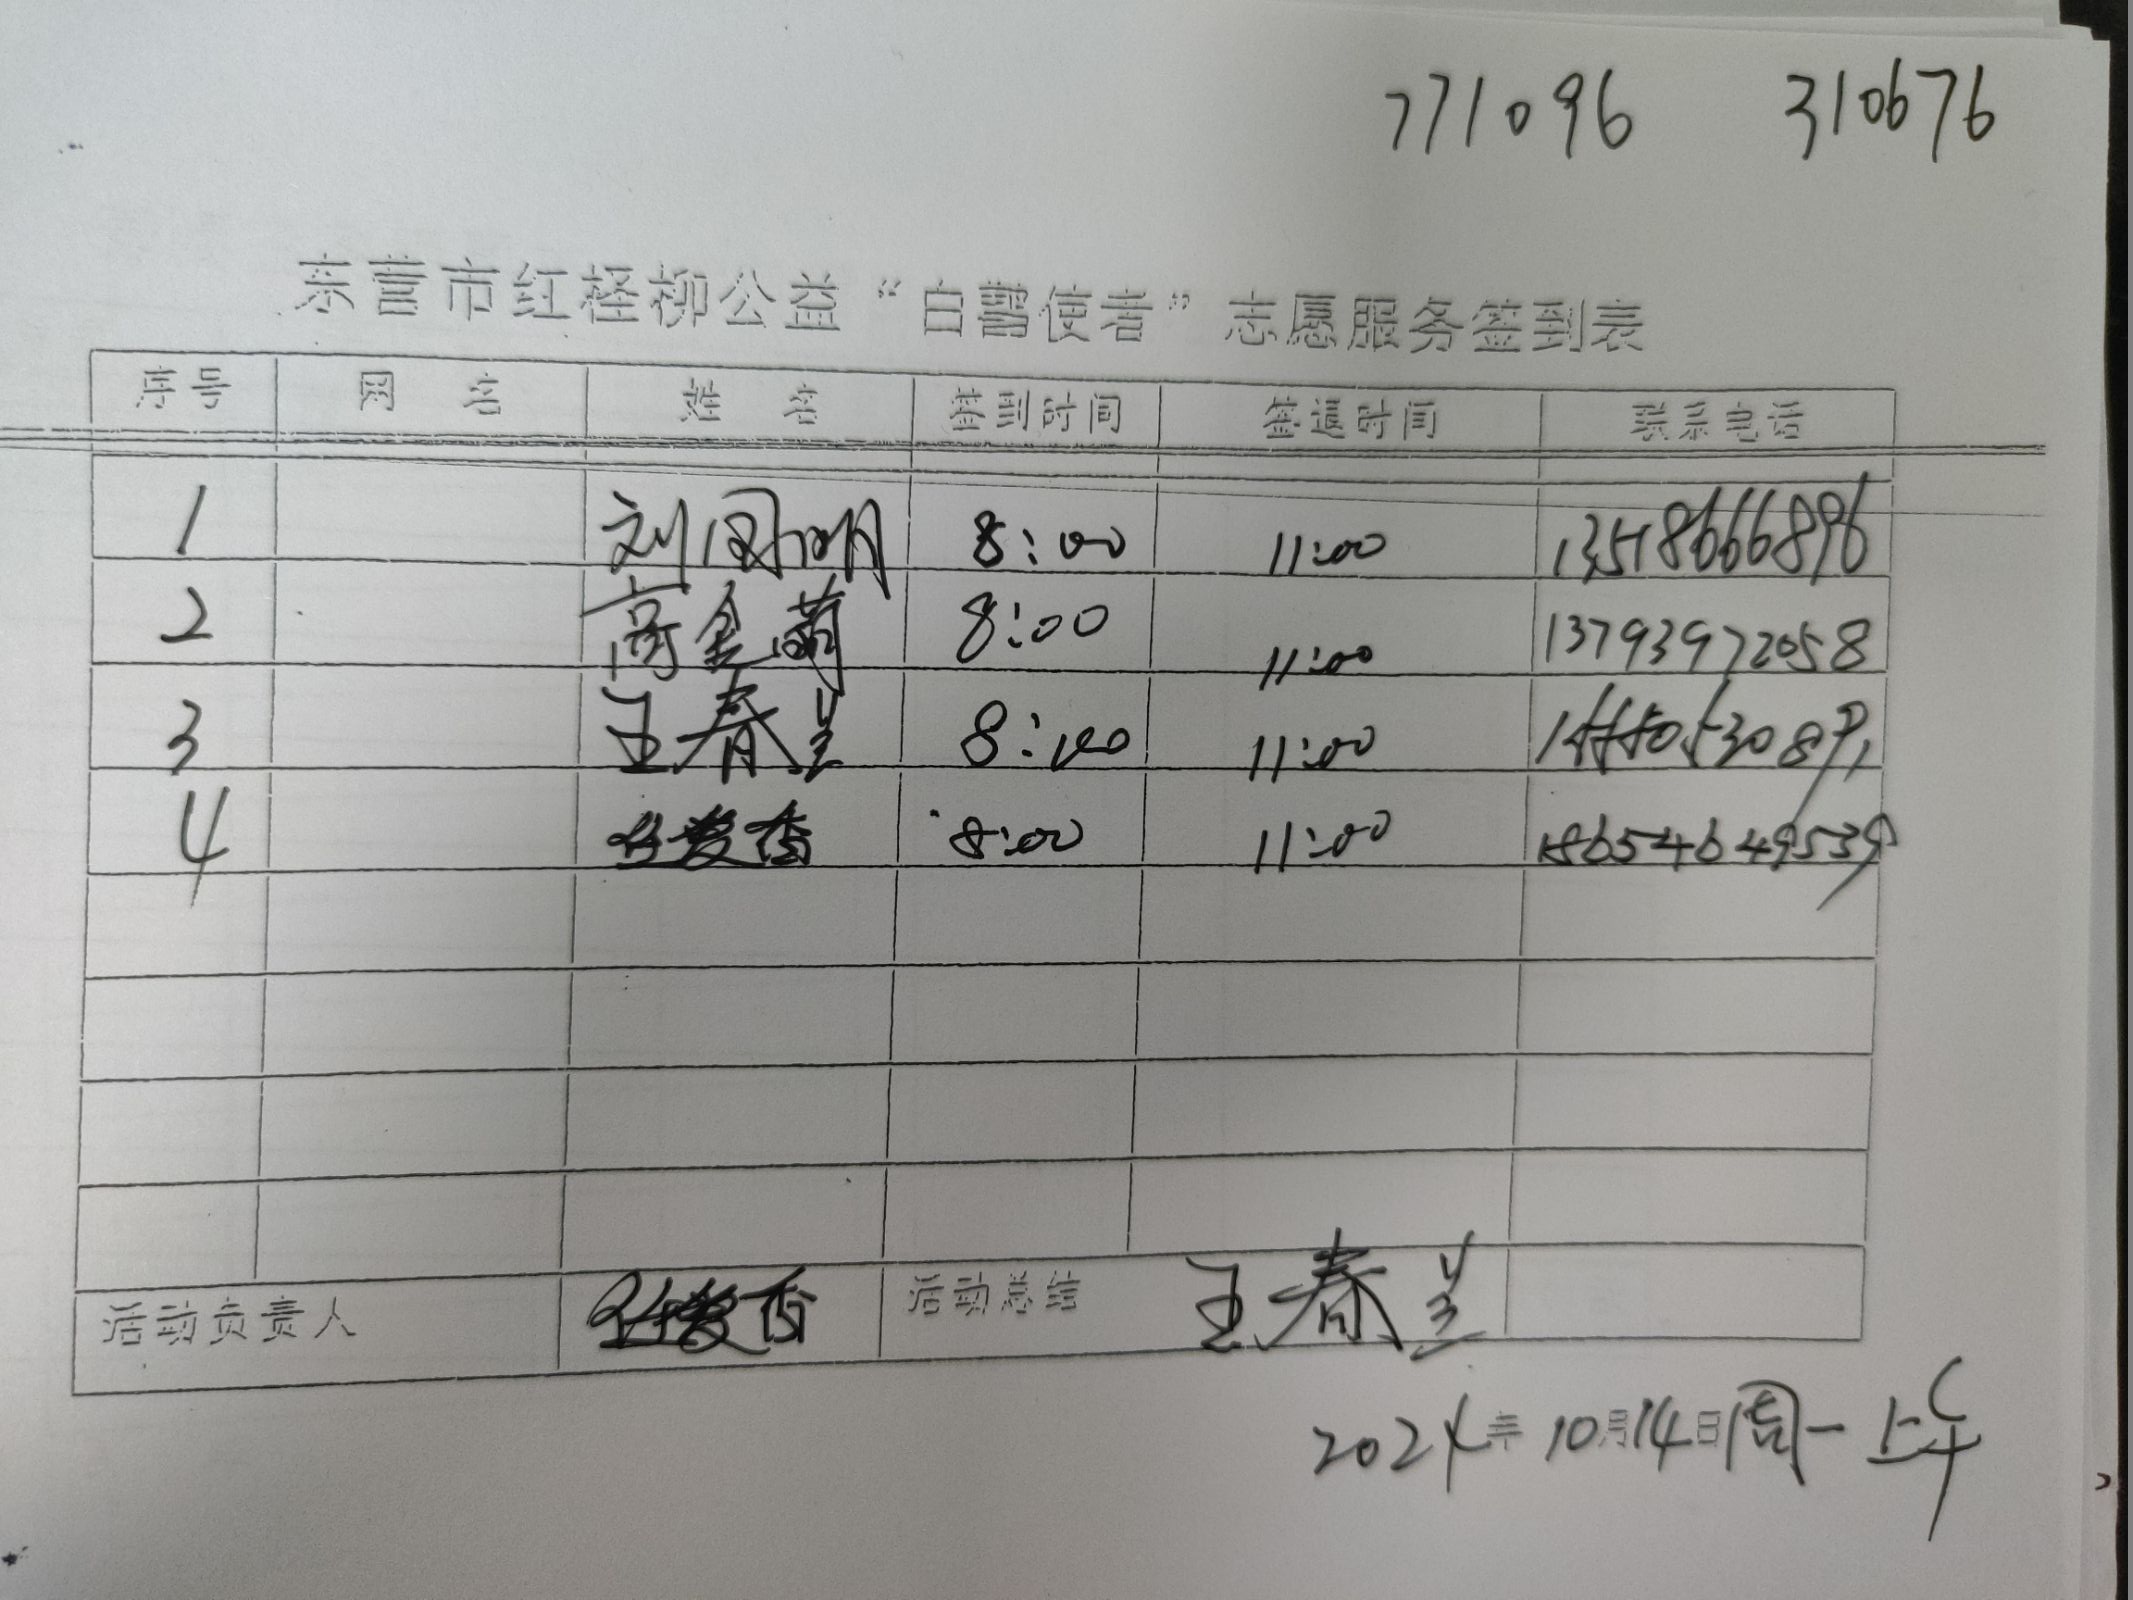 771096 310676
东营市红柽柳公益“白鹭使者”志愿服务签到表
序号 网 名 姓 名 签到时间 签退时间 联系电话
1 刘国明 8:00 11:00 13518666896
2 高金萌 8:00 11:00 13793972058
3 王春兰 8:00 11:00
4 任爱香 8:00 11:00 18654649539
活动负责人 任爱香 活动总结 王春兰
2024年10月14日周一上午